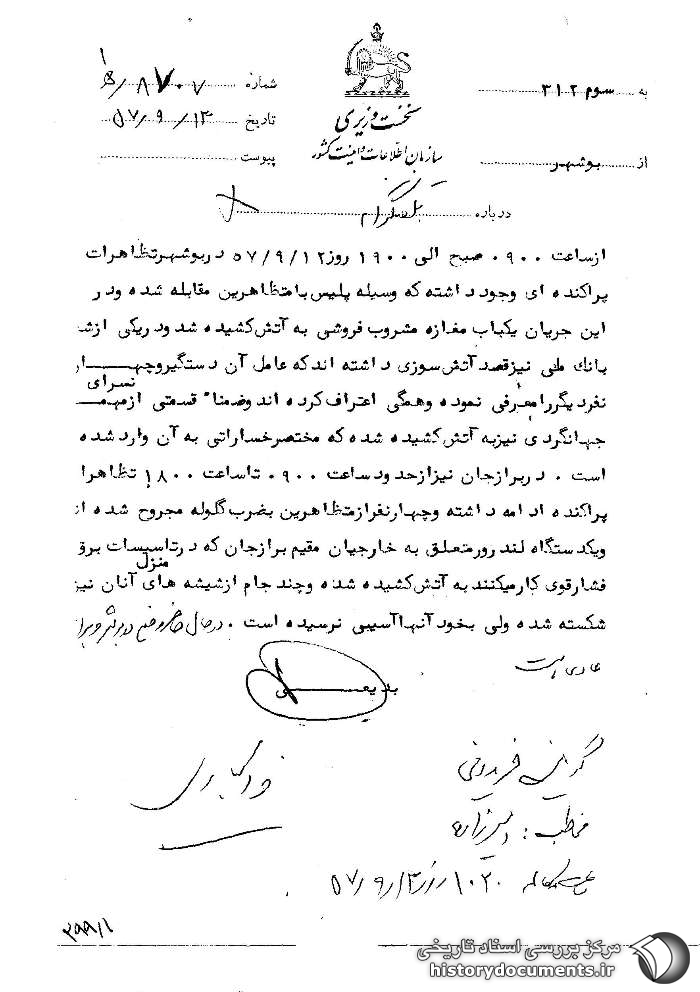 به سوم ۳۱۲
شماره ۸۷۰۷/ه‍ ۱
نخست وزیری
تاریخ ۵۷/۹/۱۳
سازمان اطلاعات و امنیت کشور
از بوشهر
پیوست
درباره تلفنگرام
ازساعت ۰۹۰۰ صبح الی ۱۹۰۰ روز ۵۷/۹/۱۲ دربوشهرتظاهرات
پراکنده ای وجود داشته که وسیله پلیس با متظاهرین مقابله شده ودر
این جریان یکباب مغازه مشروب فروشی به آتش کشیده شد ودریکی ازش
بانک ملی نیزقصد آتش سوزی داشته اندکه عامل آن دستگیروچهار
نفردیگررامعرفی نموده وهمگی اعتراف کرده اند وضمنا" قسمتی ازمهمانسرای
جهانگردی نیزبه آتش کشیده شده که مختصرخساراتی به آن وارد شده
است . دربرازجان نیزازحدود ساعت ۰۹۰۰ تاساعت ۱۸۰۰ تظاهرا
پراکنده ادامه داشته وچهارنفرازمتظاهرین بضرب گلوله مجروح شده ا
ویکدستگاه لندرورمتعلق به خارجیان مقیم برازجان که درتاسیسات برق
فشارقوی کارمیکنند به آتش کشیده شده وچند جام ازشیشه های منزل آنان نیز
شکسته شده ولی بخود آنها آسیبی نرسیده است . درحال حاضر وضع در بوشهر و براز
عادی است
بدیعی
گوینده فریدونی
مخاطب :
ساعت مکالمه ۱۰۲۰ روز ۵۷/۹/۱۳
۳۹۹/۱
مرکز بررسی اسناد تاریخی
historydocuments.ir